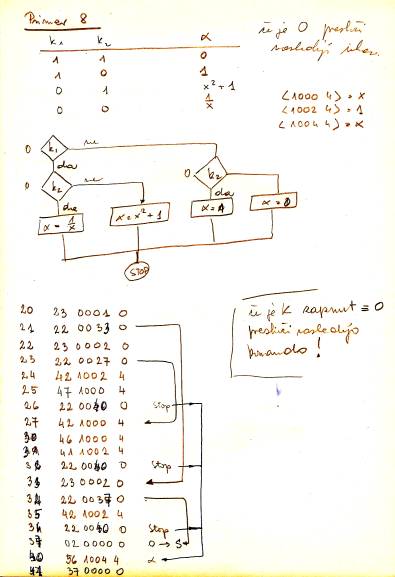 Primer 8
k₁ k₂ α
1 1 0
1 0 1
0 1 x² + 1
0 0 1/x
če je 0 preskoči
naslednji
⟨1000 4⟩ = x
⟨1002 4⟩ = 1
⟨1004 4⟩ = α
0 k₁ ne
da
0 k₂ ne
da
0 k₂
da
α = 1/x
α = x² + 1
α = 1
α = 0
STOP
če je K zaprnut ≡ 0
preskoči naslednjo
komando!
20 23 0001 0
21 22 0033 0
22 23 0002 0
23 22 0027 0
24 42 1002 4
25 47 1000 4
26 22 0040 0 Stop
27 42 1000 4
30 46 1000 4
31 41 1002 4
32 22 0040 0 Stop
33 23 0002 0
34 22 0037 0
35 42 1002 4
36 22 0040 0 Stop
37 02 0000 0 0 → S
40 56 1004 4 α
41 37 0000 0